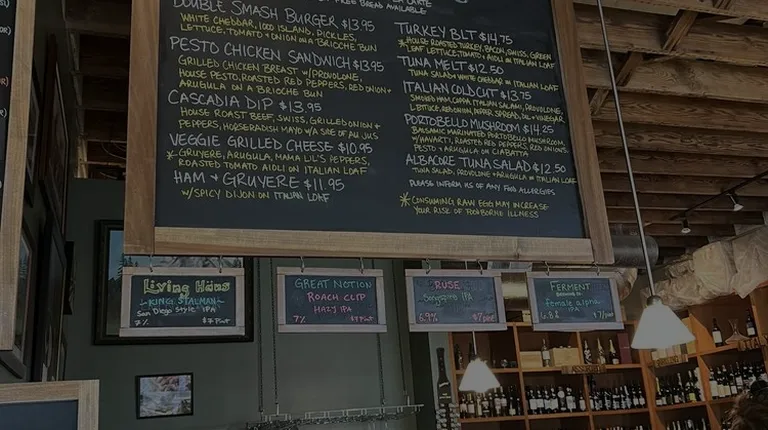 FREE BREAD AVAILABLE
DOUBLE SMASH BURGER $13.95
WHITE CHEDDAR, 1000 ISLAND, PICKLES,
LETTUCE, TOMATO + ONION ON A BRIOCHE BUN
PESTO CHICKEN SANDWICH $13.95
GRILLED CHICKEN BREAST W/PROVOLONE,
HOUSE PESTO, ROASTED RED PEPPERS, RED ONION +
ARUGULA ON A BRIOCHE BUN
CASCADIA DIP $13.95
HOUSE ROAST BEEF, SWISS, GRILLED ONION +
PEPPERS, HORSERADISH MAYO W/A SIDE OF AU JUS
VEGGIE GRILLED CHEESE $10.95
* GRUYERE, ARUGULA, MAMA LIL'S PEPPERS,
ROASTED TOMATO AIOLI ON ITALIAN LOAF
HAM + GRUYERE $11.95
W/SPICY DIJON ON ITALIAN LOAF
TURKEY BLT $14.75
*HOUSE ROASTED TURKEY, BACON, SWISS, GREEN
LEAF LETTUCE, TOMATO + AIOLI ON ITALIAN LOAF
TUNA MELT $12.50
TUNA SALAD + WHITE CHEDDAR ON ITALIAN LOAF
ITALIAN COLD CUT $13.75
SMOKED HAM, COPPA, ITALIAN SALAMI, PROVOLONE,
LETTUCE, RED ONION, PEPPER SPREAD, OIL + VINEGAR
PORTOBELLO MUSHROOM $14.25
BALSAMIC MARINATED PORTOBELLO MUSHROOM
W/HAVARTI, ROASTED RED PEPPERS, RED ONIONS,
PESTO + ARUGULA ON CIABATTA
ALBACORE TUNA SALAD $12.50
TUNA SALAD, PROVOLONE + ARUGULA ON ITALIAN LOAF
PLEASE INFORM US OF ANY FOOD ALLERGIES
* CONSUMING RAW EGG MAY INCREASE
YOUR RISK OF FOODBORNE ILLNESS
Living Haus
~KING STALMAN~
San Diego Style IPA
7% $7 Pint
GREAT NOTION
ROACH CLIP
HAZY IPA
7% $7 PINT
RUSE
IPA
6.9% $7 PINT
FERMENT
female alpha
IPA
6.8% $7/PINT